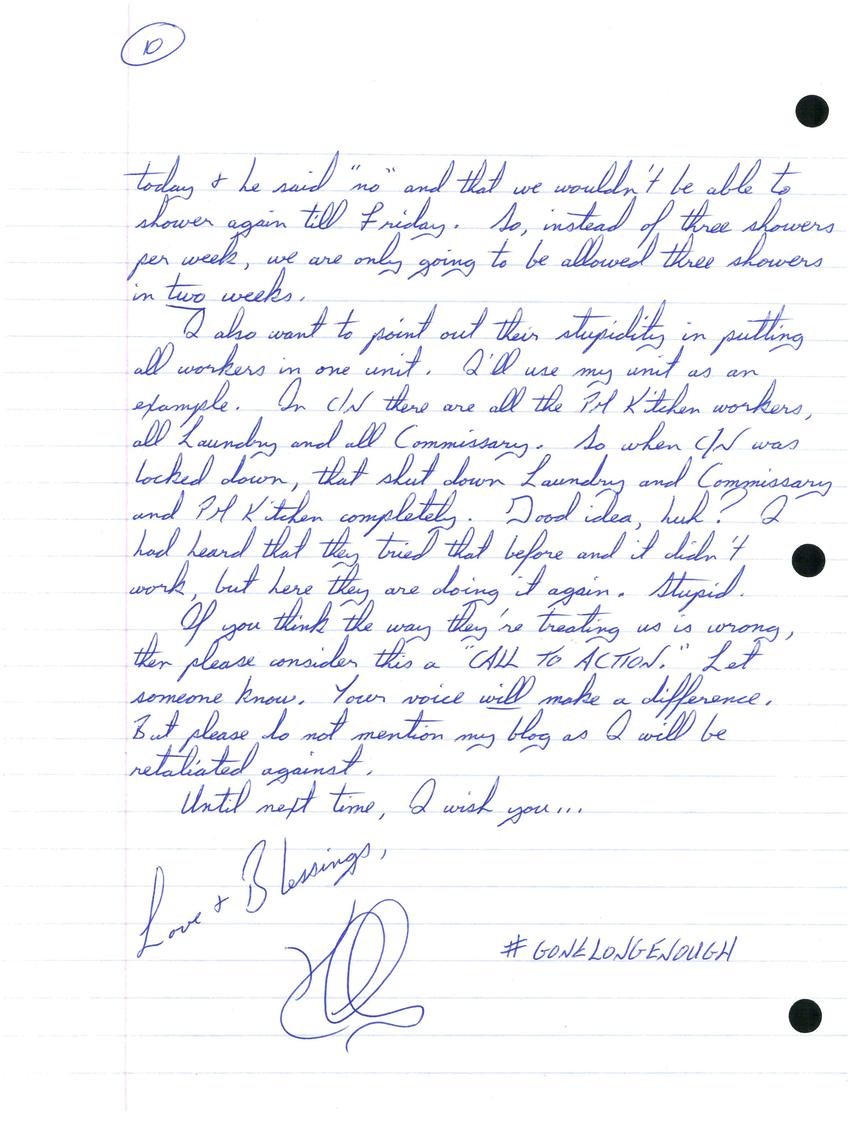 10
today & he said "no" and that we wouldn't be able to
shower again till Friday. So, instead of three showers
per week, we are only going to be allowed three showers
in two weeks.
I also want to point out their stupidity in putting
all workers in one unit. I'll use my unit as an
example. In C/N there are all the PM Kitchen workers,
all Laundry and all Commissary. So when C/N was
locked down, that shut down Laundry and Commissary
and PM Kitchen completely. Good idea, huh? I
had heard that they tried that before and it didn't
work, but here they are doing it again. Stupid.
If you think the way they're treating us is wrong,
then please consider this a "CALL TO ACTION." Let
someone know. Your voice will make a difference.
But please do not mention my blog as I will be
retaliated against.
Until next time, I wish you...
Love & Blessings,
#GONELONGENOUGH